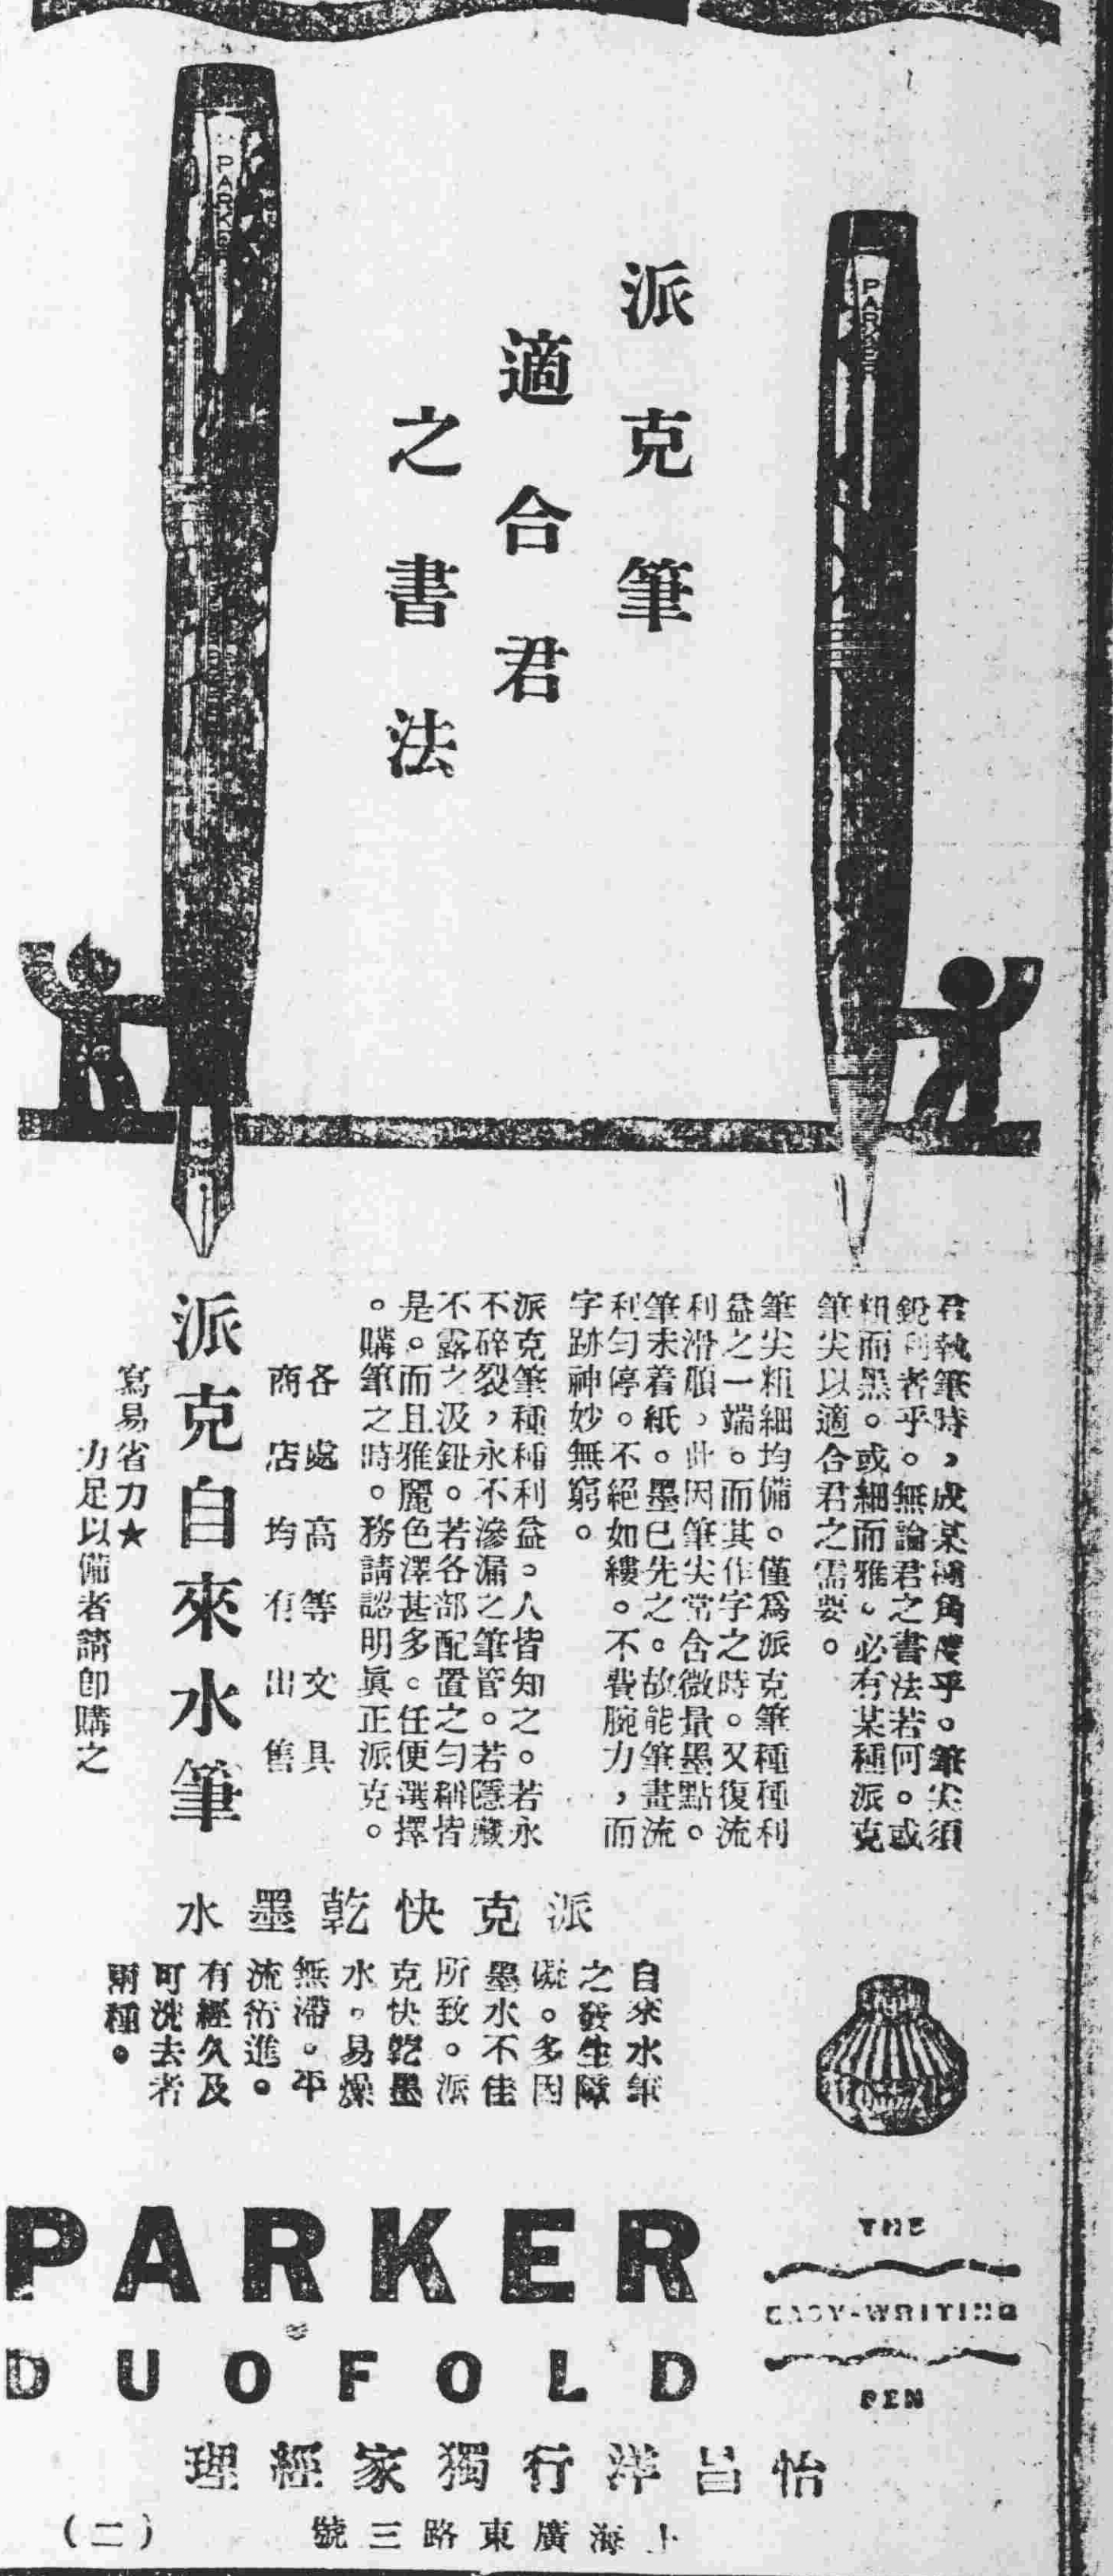 派克筆
適合君
之書法
PARKER
PARKER
君執筆時，成某種角度乎。筆尖須
銳利者乎。無論君之書法若何。或
粗而黑。或細而雅。必有某種派克
筆尖以適合君之需要。
筆尖粗細均備。僅爲派克筆種種利
益之一端。而其作字之時。又復流
利滑順，此因筆尖常含微量墨點。
筆未着紙。墨已先之。故能筆畫流
利匀停。不絕如縷。不費腕力，而
字跡神妙無窮。
派克筆種種利益。人皆知之。若永
不碎裂，永不滲漏之筆管。若隱藏
不露之汲鈕。若各部配置之匀稱皆
是。而且雅麗色澤甚多。任便選擇
。購筆之時。務請認明眞正派克。
各處高等文具
商店均有出售
派克自來水筆
寫易省力★
力足以備者請卽購之
派克快乾墨水
自來水筆
之發生障
礙。多因
墨水不佳
所致。派
克快乾墨
水。易燥
無滯。平
流衍進。
有經久及
可洗去者
兩種。
PARKER
DUOFOLD
THE
EASY-WRITING
PEN
怡昌洋行獨家經理
上海廣東路三號
（二）